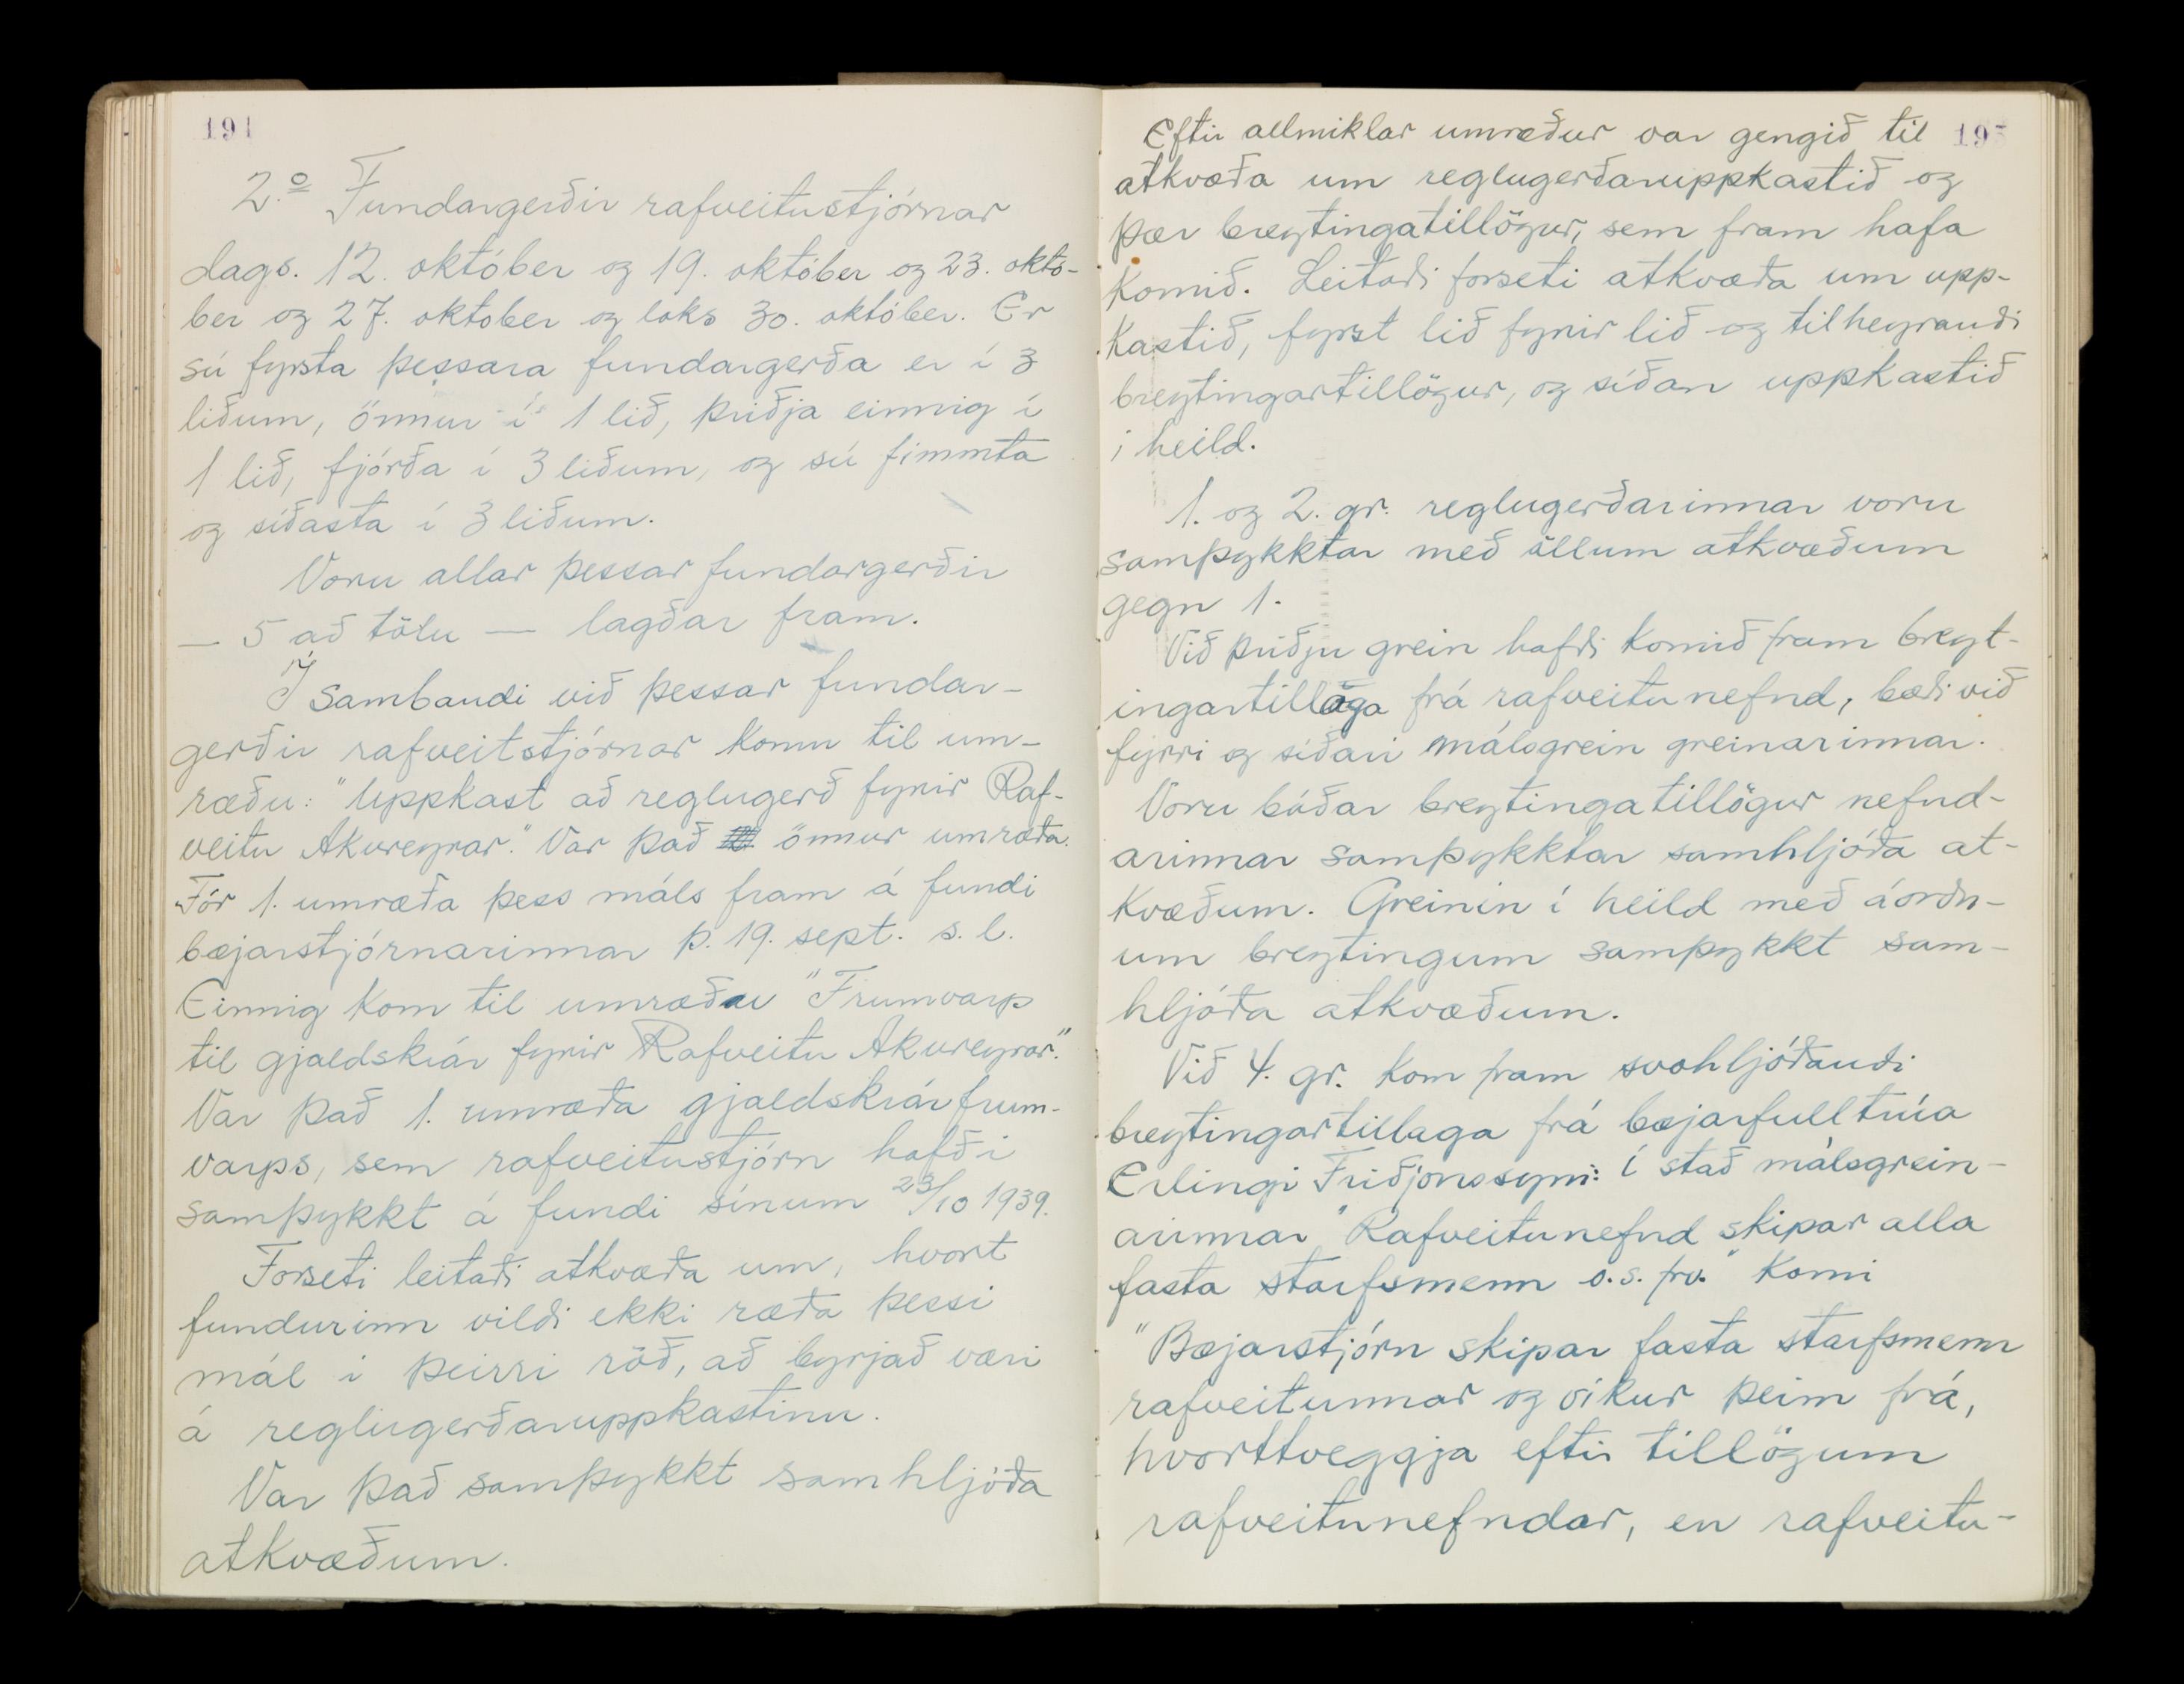 194
2.º Fundargerðir rafveitustjórnar
dags. 12. október og 19. október og 23. októ-
ber og 27. október og loks 30. október. Er
sú fyrsta þessara fundargerða er í 3
liðum, önnur í 1 lið, þriðja einnig í
1 lið, fjórða í 3 liðum, og sú fimmta
og síðasta í 3 liðum.
Voru allar þessar fundargerðir
— 5 að tölu — lagðar fram.
Í sambandi við þessar fundar-
gerðir rafveitstjórnar komu til um-
ræðu: "Uppkast að reglugerð fyrir Raf-
veitu Akureyrar." Var það önnur umræða.
Fór 1. umræða þess máls fram á fundi
bæjarstjórnarinnar þ. 19. sept. s.l.
Einnig kom til umræðu "Frumvarp
til gjaldskrár fyrir Rafveitu Akureyrar."
Var það 1. umræða gjaldskrárfrum-
varps, sem rafveitustjórn hafði
samþykkt á fundi sínum 23/10 1939.
Forseti leitaði atkvæða um, hvort
fundurinn vildi ekki ræða þessi
mál í þeirri röð, að byrjað væri
á reglugerðaruppkastinu.
Var það samþykkt samhljóða
atkvæðum.
195
Eftir allmiklar umræður var gengið til
atkvæða um reglugerðaruppkastið og
þær breytingatillögur, sem fram hafa
komið. Leitaði forseti atkvæða um upp-
kastið, fyrst lið fyrir lið og tilheyrandi
breytingartillögur, og síðan uppkastið
í heild.
1. og 2. gr. reglugerðarinnar voru
samþykktar með öllum atkvæðum
gegn 1.
Við þriðju grein hafði komið fram breyt-
ingartillaga frá rafveitunefnd, bæði við
fyrri og síðari málsgrein greinarinnar.
Voru báðar breytingatillögur nefnd-
arinnar samþykktar samhljóða at-
kvæðum. Greinin í heild með áorðn-
um breytingum samþykkt sam-
hljóða atkvæðum.
Við 4. gr. kom fram svohljóðandi
breytingartillaga frá bæjarfulltrúa
Erlingi Friðjónssyni: Í stað málsgrein-
arinnar "Rafveitunefnd skipar alla
fasta starfsmenn o.s.frv." komi
"Bæjarstjórn skipar fasta starfsmenn
rafveitunnar og víkur þeim frá,
hvorttveggja eftir tillögum
rafveitunefndar, en rafveitu-